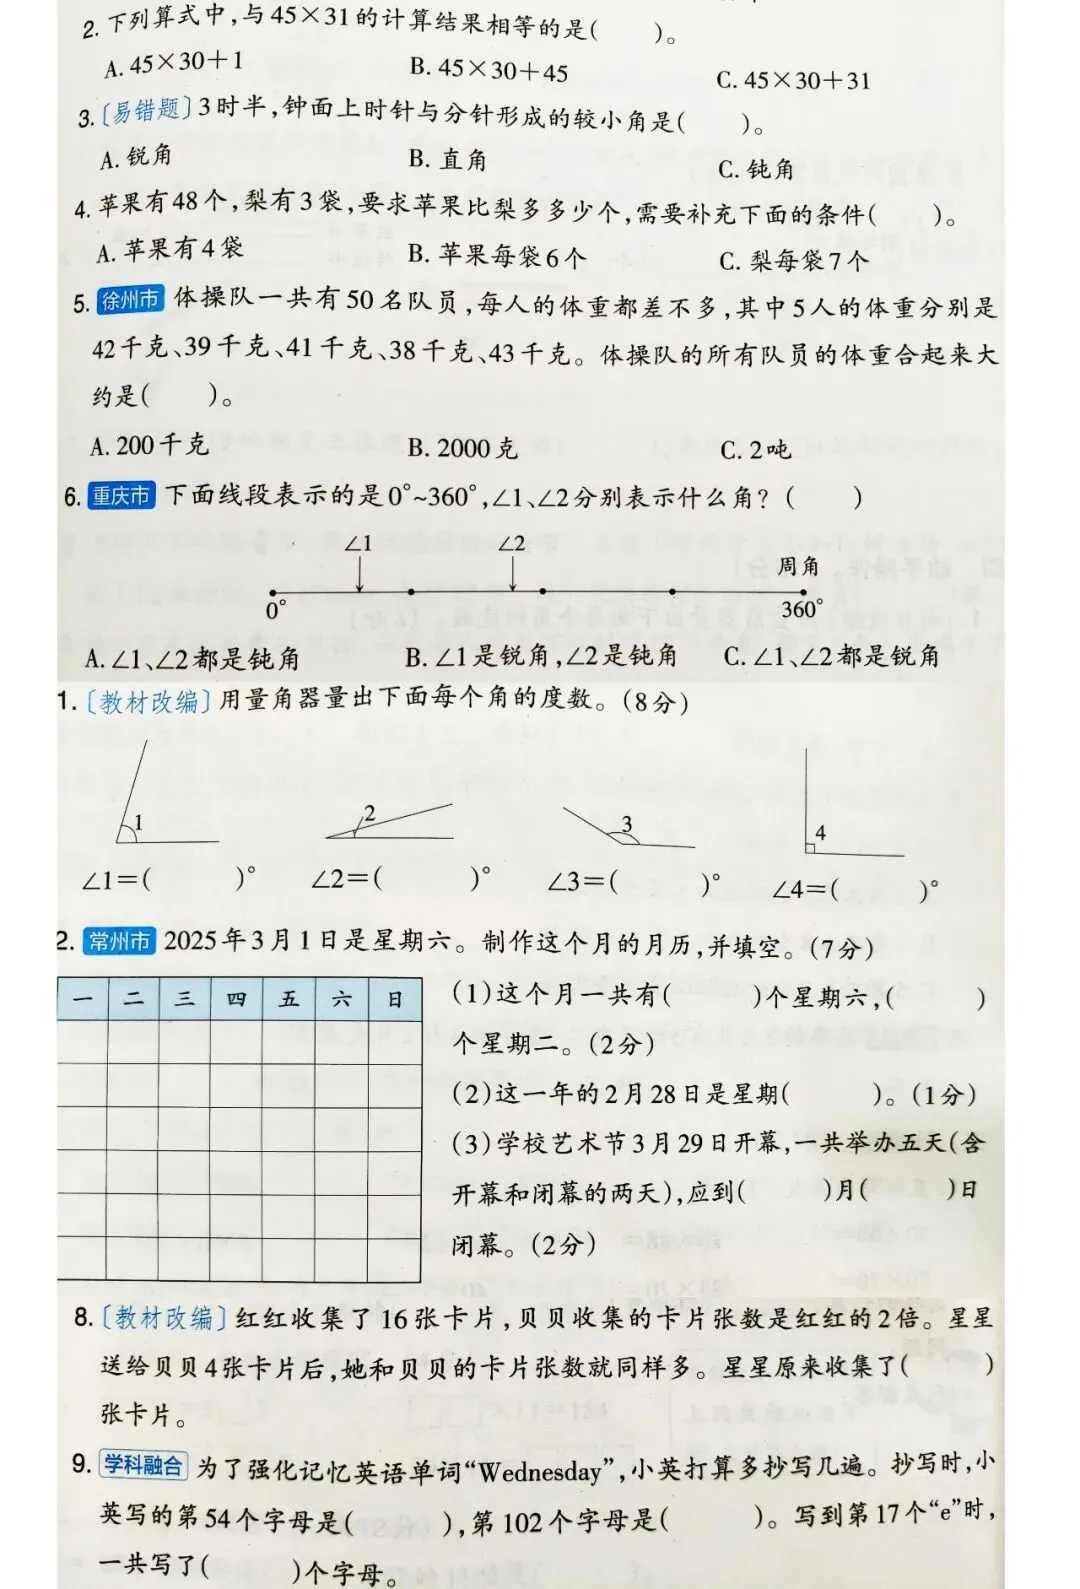 2. 下列算式中,与45×31的计算结果相等的是(　　)。
A. 45×30+1　B. 45×30+45　C. 45×30+31
3.〔易错题〕3时半,钟面上时针与分针形成的较小角是(　　)。
A. 锐角　B. 直角　C. 钝角
4. 苹果有48个,梨有3袋,要求苹果比梨多多少个,需要补充下面的条件(　　)。
A. 苹果有4袋　B. 苹果每袋6个　C. 梨每袋7个
5. 徐州市 体操队一共有50名队员,每人的体重都差不多,其中5人的体重分别是
42千克、39千克、41千克、38千克、43千克。体操队的所有队员的体重合起来大
约是(　　)。
A. 200千克　B. 2000克　C. 2吨
6. 重庆市 下面线段表示的是0°~360°,∠1、∠2分别表示什么角?(　　)
∠1　∠2
周角
0°　360°
A. ∠1、∠2都是钝角　B. ∠1是锐角,∠2是钝角　C. ∠1、∠2都是锐角
1.〔教材改编〕用量角器量出下面每个角的度数。(8分)
1　2　3　4
∠1=(　　)°　∠2=(　　)°　∠3=(　　)°　∠4=(　　)°
2. 常州市 2025年3月1日是星期六。制作这个月的月历,并填空。(7分)
一　二　三　四　五　六　日
(1)这个月一共有(　　)个星期六,(　　)
个星期二。(2分)
(2)这一年的2月28日是星期(　　)。(1分)
(3)学校艺术节3月29日开幕,一共举办五天(含
开幕和闭幕的两天),应到(　　)月(　　)日
闭幕。(2分)
8.〔教材改编〕红红收集了16张卡片,贝贝收集的卡片张数是红红的2倍。星星
送给贝贝4张卡片后,她和贝贝的卡片张数就同样多。星星原来收集了(　　)
张卡片。
9. 学科融合 为了强化记忆英语单词“Wednesday”,小英打算多抄写几遍。抄写时,小
英写的第54个字母是(　　),第102个字母是(　　)。写到第17个“e”时,
一共写了(　　)个字母。